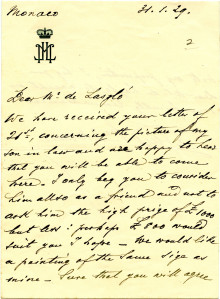 Monaco
31.1.29.
2
Dear Mr de László
We have received your letter of
21st concerning the picture of my
son in law and are happy to hear
that you will be able to come
here. I only beg you to consider
him also as a friend and not to
ask him the high price of £1000
but as: perhaps £800 would
suit you I hope – We would like
a painting of the same size as
mine – Sure that you will agree